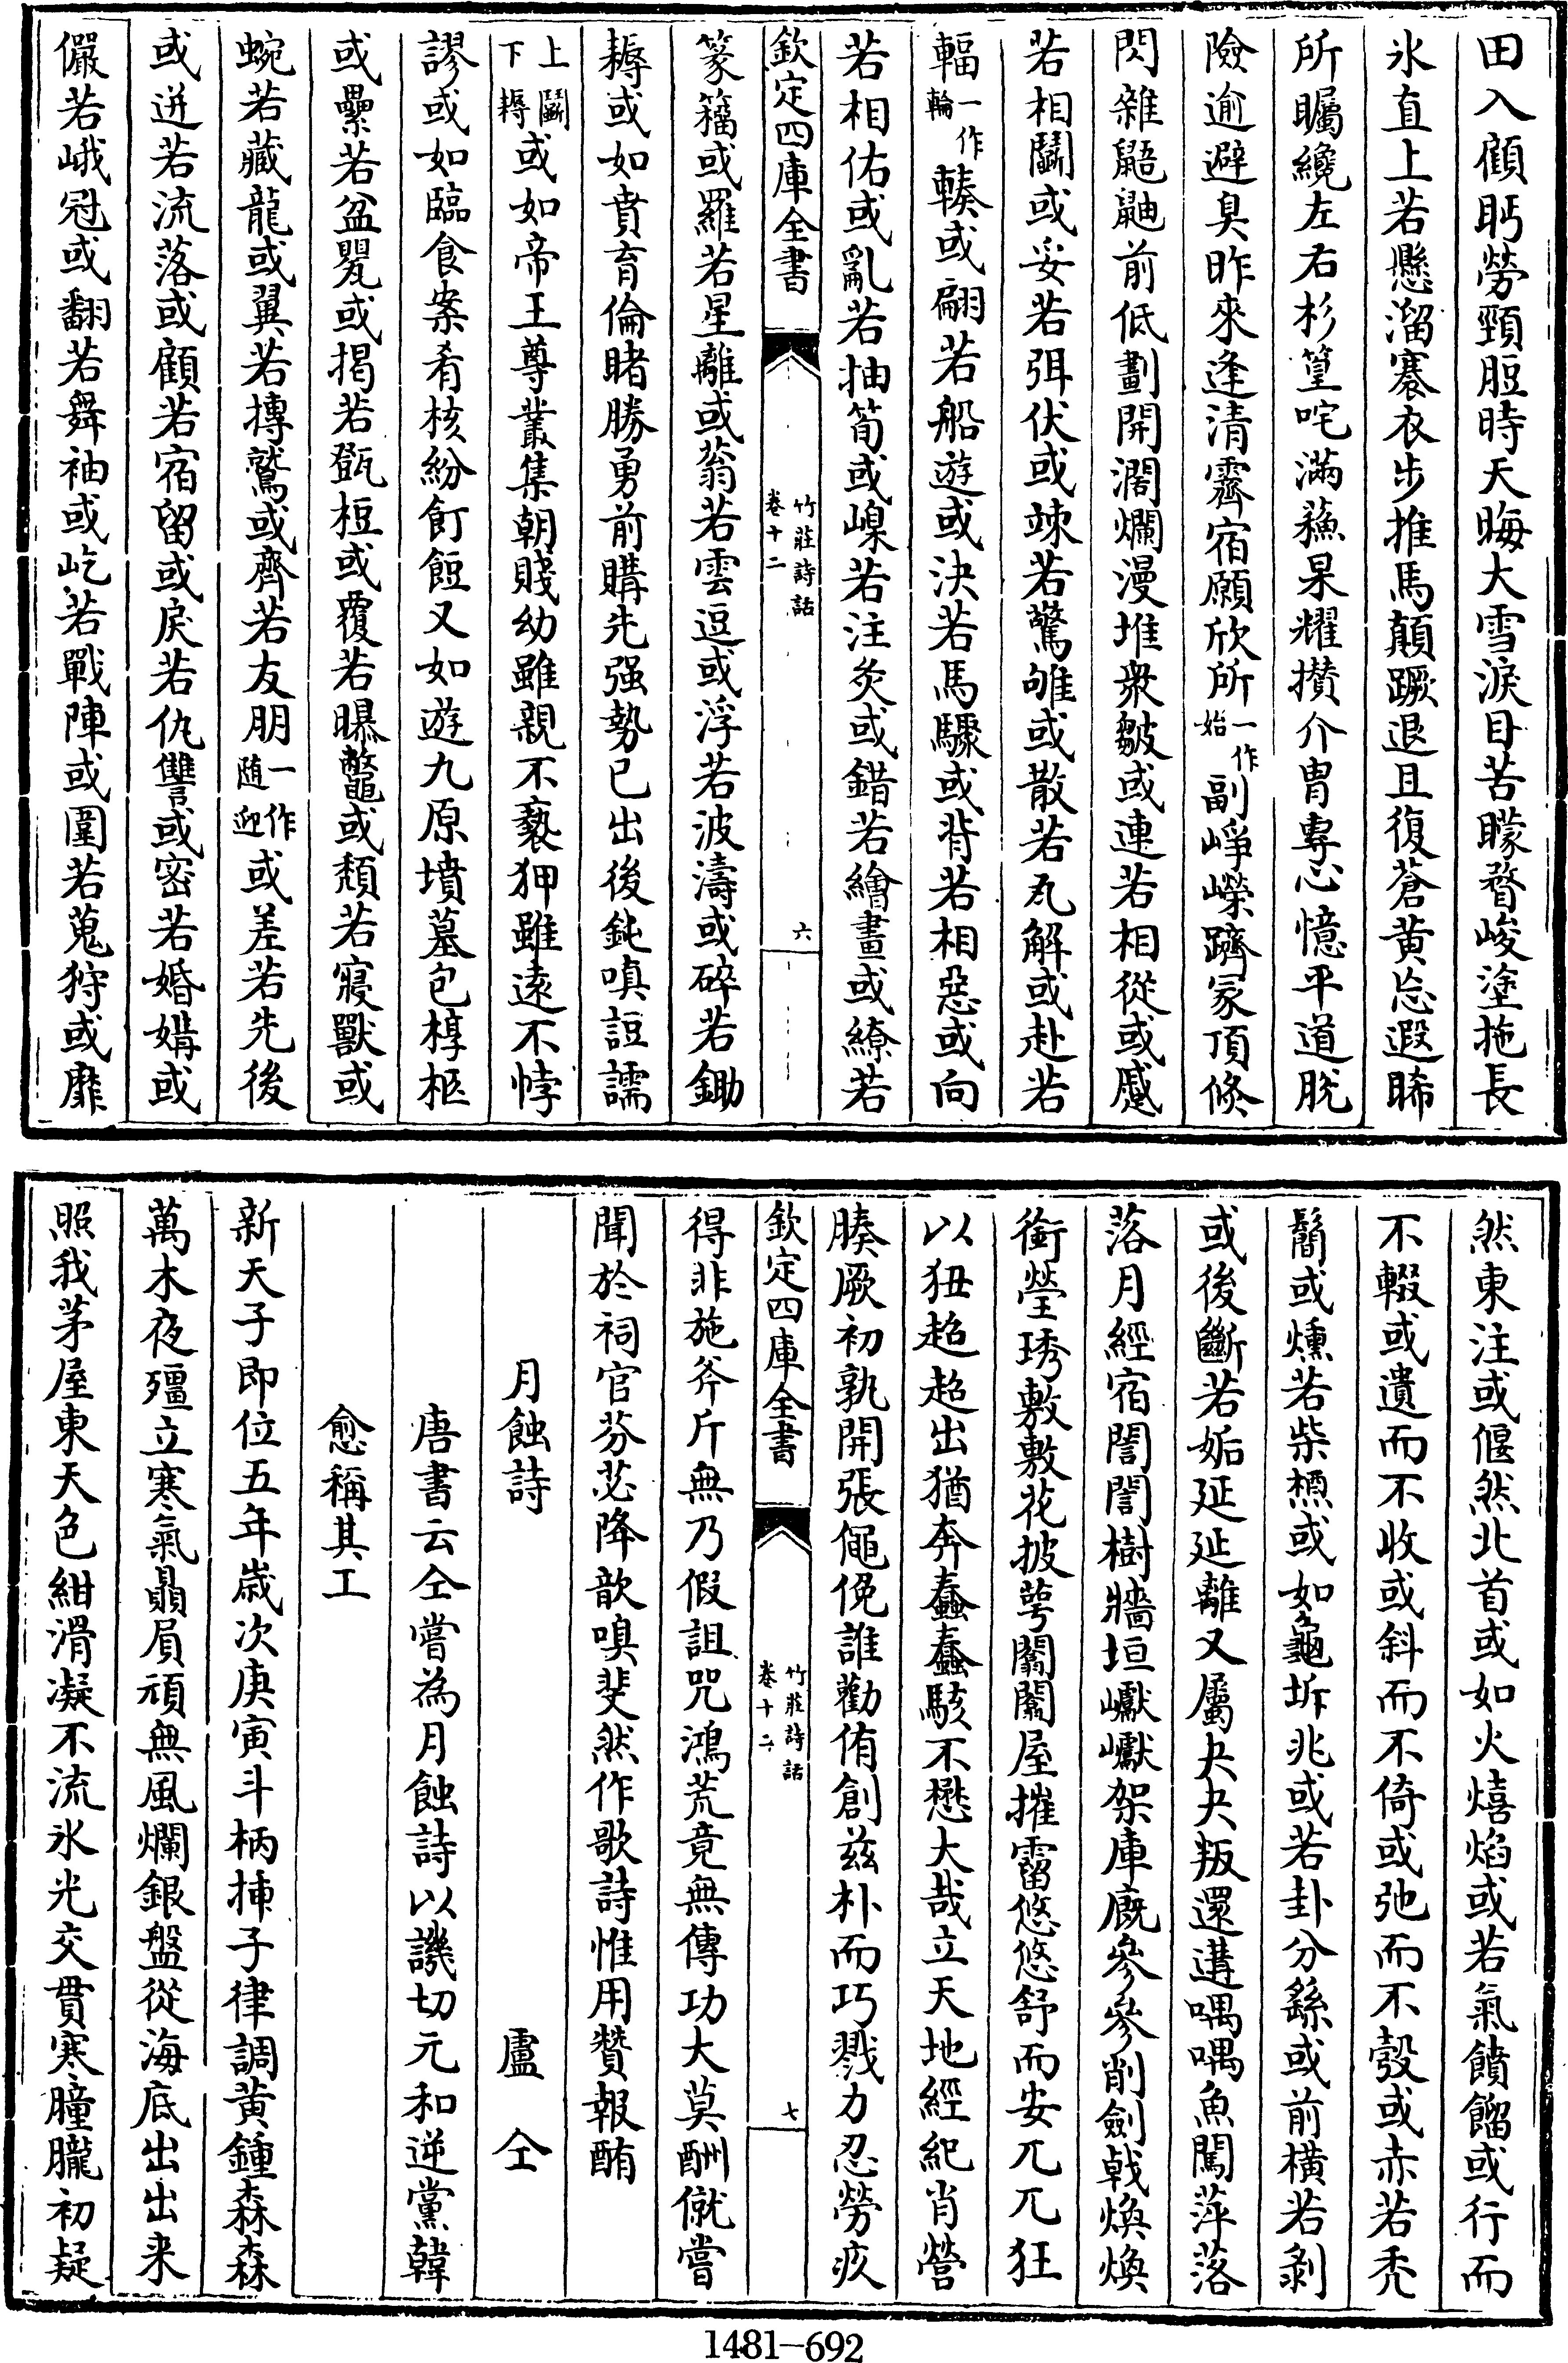 田入顧眄勞頸脰時天晦大雪淚目苦矇瞀峻塗拖長
氷直上若懸溜褰衣步推馬顛蹶退且復蒼黄忘遐睎
所矚纔左右杉篁咤滿蘓杲耀攅介胄專心憶平道脫
險逾避臭昨來逢清霽宿願欣所一作始副崢嶸躋冡頂倐
閃雜鼯鼬前低劃開濶爛漫堆衆皺或連若相從或蹙
若相鬭或妥若弭伏或竦若驚雊或散若瓦解或赴若
輻一作輪輳或翩若船遊或決若馬驟或背若相惡或向
若相佑或亂若抽筍或嵲若注灸或錯若繪畫或繚若
欽定四庫全書
竹莊詩話
卷十二
六
篆籒或羅若星離或蓊若雲逗或浮若波濤或碎若鋤
耨或如賁育倫賭勝勇前購先强勢已出後鈍嗔䛠譳
上鬭下耨或如帝王尊叢集朝賤幼雖親不䙝狎雖遠不悖
謬或如臨食案肴核紛飣餖又如遊九原墳墓包椁柩
或纍若盆甖或揭若㽅梪或覆若曝鼈或頽若寢獸或
蜿若藏龍或翼若搏鷲或齊若友朋一作随迎或差若先後
或迸若流落或顧若宿留或戾若仇讐或密若婚媾或
儼若峨冠或翻若舞袖或屹若戰陣或圍若蒐狩或靡
然東注或偃然北首或如火熺焰或若氣饙餾或行而
不輟或遺而不收或斜而不倚或弛而不彀或赤若秃
鬝或燻若柴槱或如龜坼兆或若卦分繇或前横若剥
或後斷若姤延延離又屬夬夬叛還遘喁喁魚闖萍落
落月經宿誾誾樹牆垣巘巘架庫厩參參削劍㦸煥煥
銜瑩琇敷敷花披萼闟闟屋摧霤悠悠舒而安兀兀狂
以狃超超出猶奔蠢蠢駭不懋大哉立天地經紀肖營
腠厥初孰開張僶俛誰勸侑創兹朴而巧戮力忍勞疚
欽定四庫全書
竹莊詩話
卷十二
七
得非施斧斤無乃假詛咒鴻荒竟無傳功大莫酬僦嘗
聞於祠官芬苾降歆嗅斐然作歌詩惟用贊報酭
月蝕詩 盧仝
唐書云仝嘗為月蝕詩以譏切元和逆黨韓
愈稱其工
新天子即位五年歲次庚寅斗柄揷子律調黄鍾森森
萬木夜殭立寒氣贔屓頑無風爛銀盤從海底出出来
照我茅屋東天色紺滑凝不流氷光交貫寒曈朧初疑
1481—692